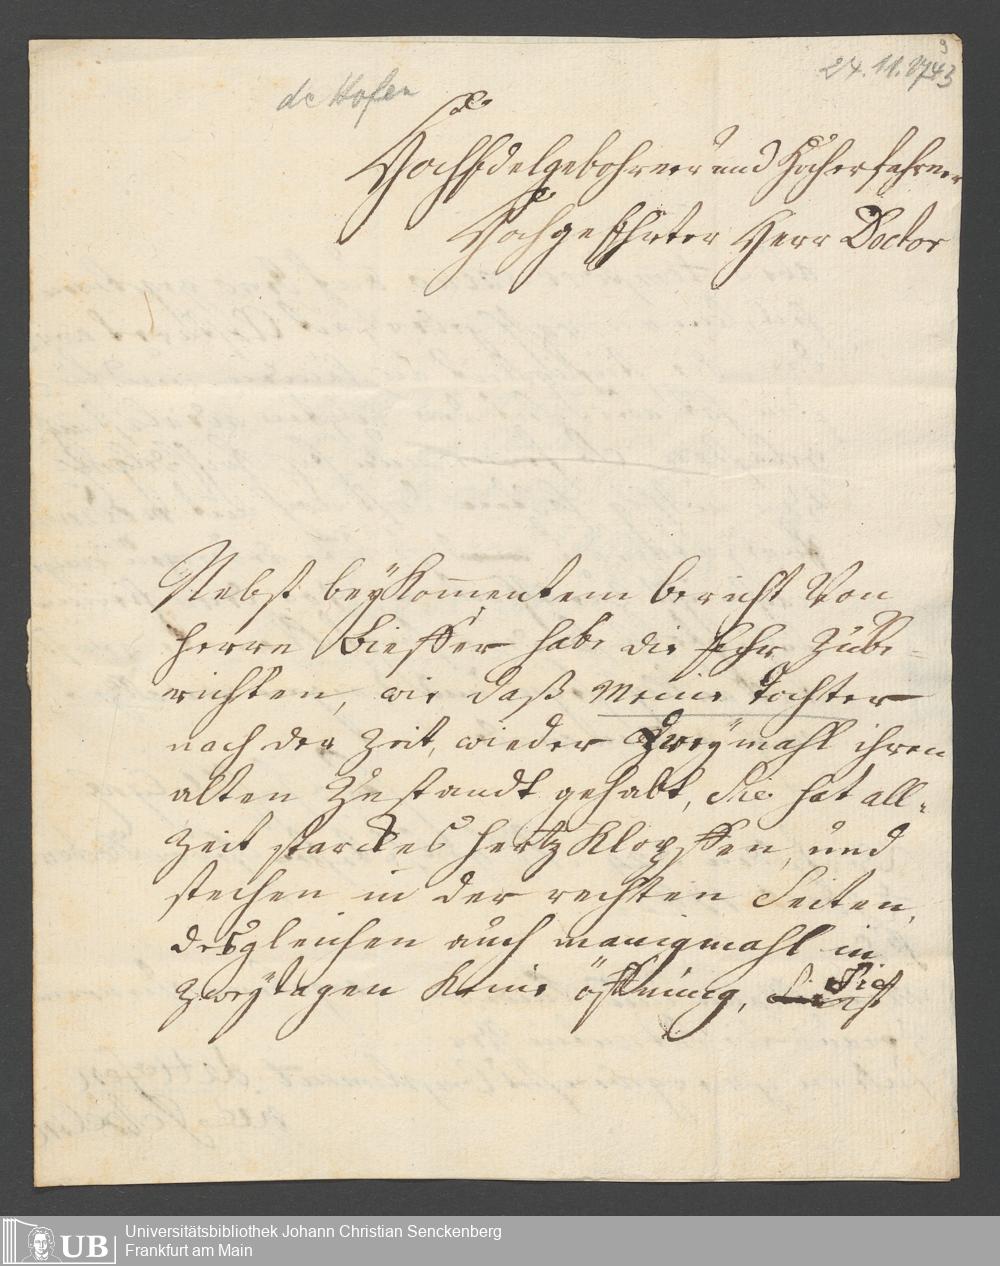 9
24.11.1743
de Hosen
HochEdelgebohrner und Hocherfahrner
HochgeEhrter Herr Doctor
Nebst beykommentem bericht Von
Herrn Bieffer habe die Ehr zube-
richten, wie daß Meine Tochter
nach der Zeit, wieder Zweymahl ihren
alten Zustandt gehabt, Sie hat all-
zeit starckes Hertz Klopffen, und
stechen in der rechten Seiten,
desgleichen auch manigmahl in
zweytagen Keine öffnung, Sie ist
UB
Universitätsbibliothek Johann Christian Senckenberg
Frankfurt am Main